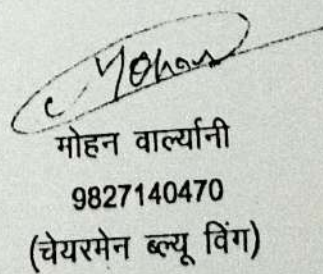 Mohan
मोहन वार्ल्यानी
9827140470
(चेयरमेन ब्ल्यू विंग)